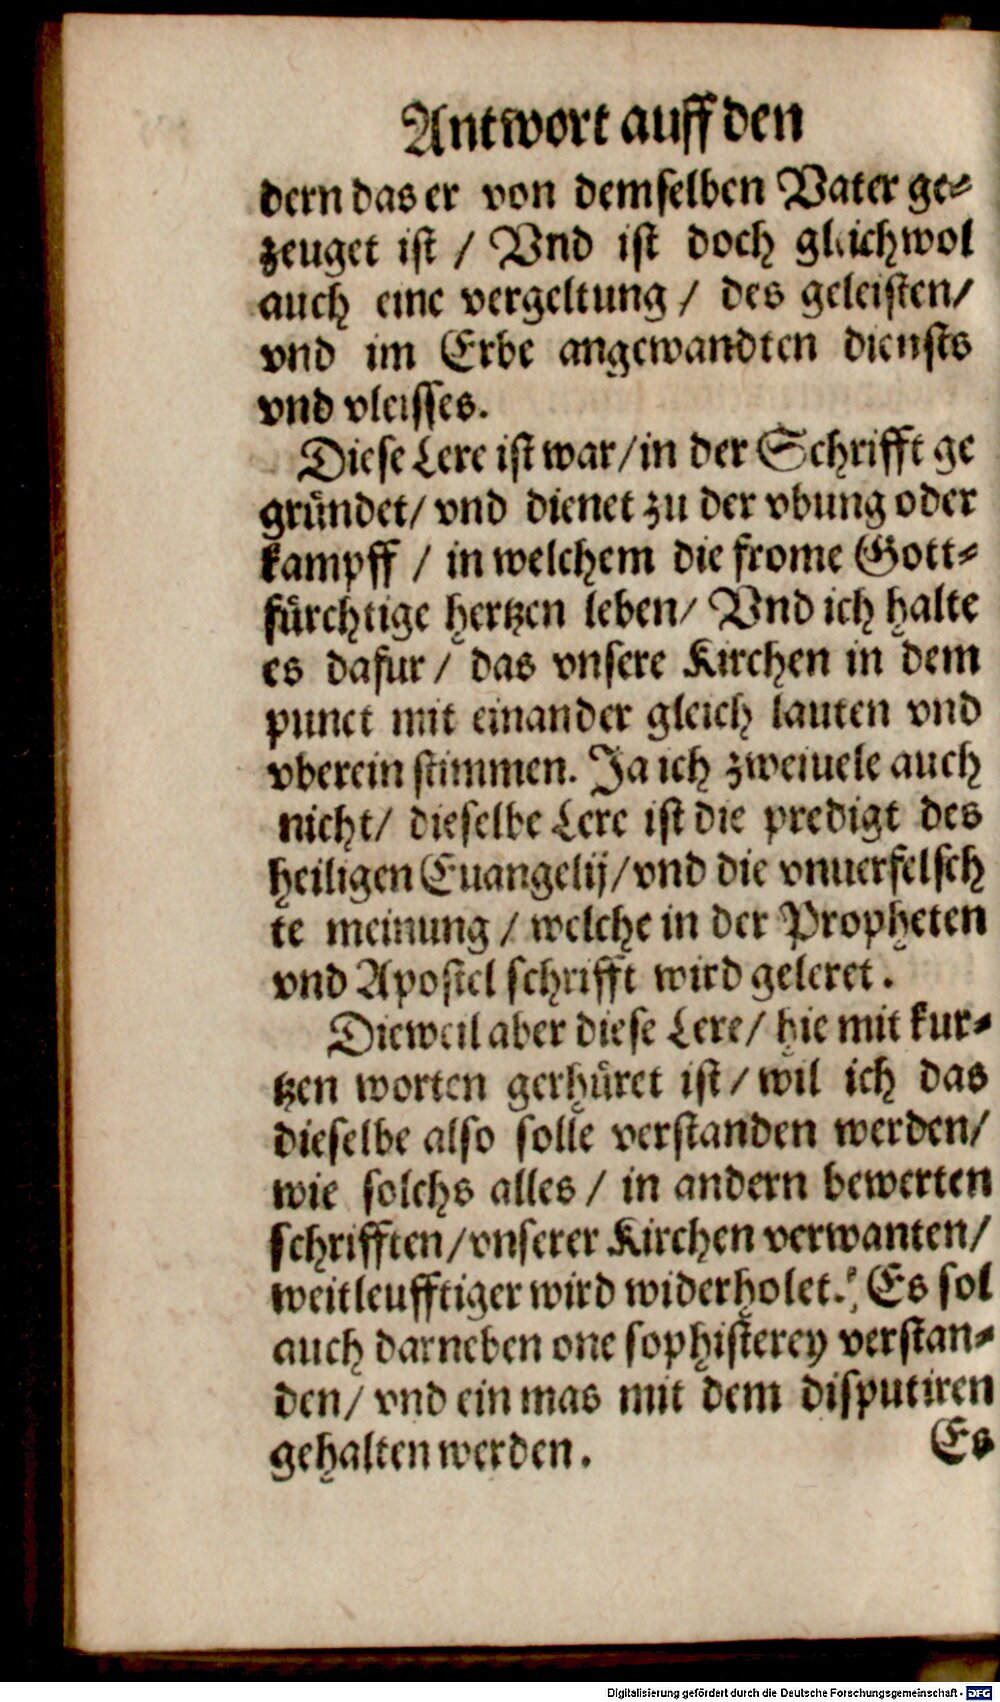 Antwort auff den
dern das er von demselben Vater ge-
zeuget ist / Vnd ist doch gleichwol
auch eine vergeltung / des geleisten/
vnd im Erbe angewandten diensts
vnd vleisses.
Diese Lere ist war/in der Schrifft ge
gründet/ vnd dienet zu der vbung oder
kampff / in welchem die frome Gott-
fürchtige hertzen leben/ Vnd ich halte
es dafur / das vnsere Kirchen in dem
punct mit einander gleich lauten vnd
vberein stimmen. Ja ich zweiuele auch
nicht/ dieselbe Lere ist die predigt des
heiligen Euangelij/vnd die vnuerfelsch
te meinung / welche in der Propheten
vnd Apostel schrifft wird geleret.
Dieweil aber diese Lere/ hie mit kur-
tzen worten gerhüret ist / wil ich das
dieselbe also solle verstanden werden/
wie solchs alles / in andern bewerten
schrifften/vnserer Kirchen verwanten/
weitleufftiger wird widerholet. Es sol
auch darneben one sophisterey verstan-
den/ vnd ein mas mit dem disputiren
gehalten werden.
Es
Digitalisierung gefördert durch die Deutsche Forschungsgemeinschaft - DFG